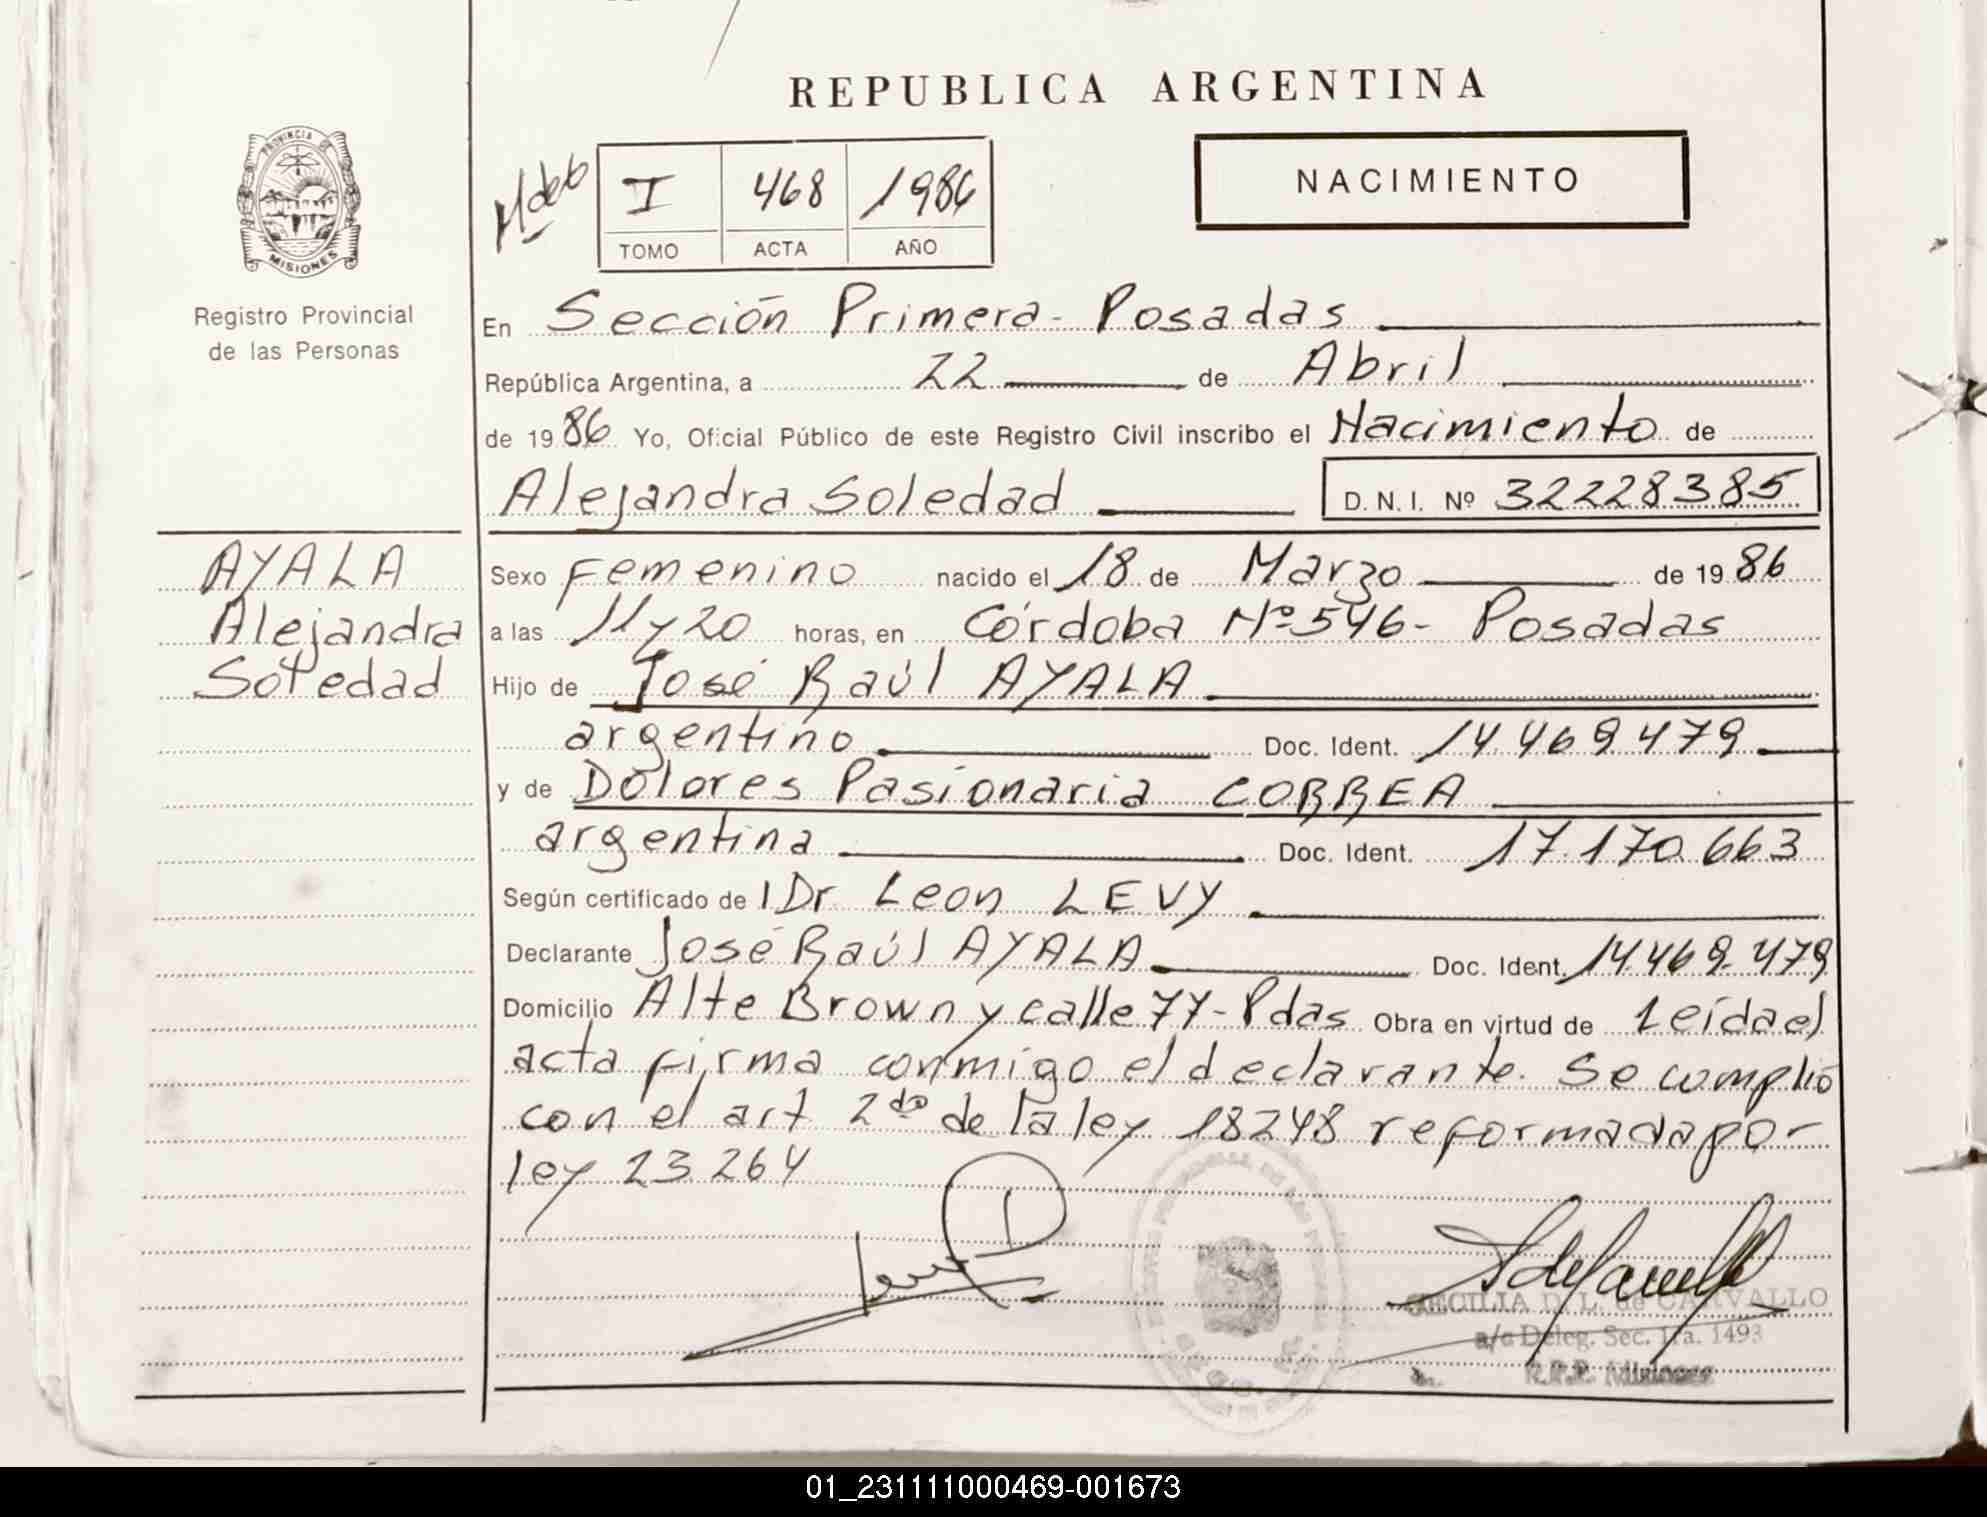 REPUBLICA ARGENTINA
PROVINCIA DE
MISIONES
Registro Provincial
de las Personas
I 468 1986
TOMO ACTA AÑO
NACIMIENTO
En Sección Primera - Posadas
República Argentina, a 22 de Abril
de 1986 Yo, Oficial Público de este Registro Civil inscribo el Nacimiento de
Alejandra Soledad D.N.I. Nº 32228385
AYALA
Alejandra
Soledad
Sexo Femenino nacido el 18 de Marzo de 1986
a las 11 y 20 horas, en Córdoba Nº 546 - Posadas
Hijo de José Raúl AYALA
argentino Doc. Ident. 14.469.479
y de Dolores Pasionaria CORREA
argentina Doc. Ident. 17.170.663
Según certificado de l Dr Leon LEVY
Declarante José Raúl AYALA Doc. Ident. 14.469.479
Domicilio Alte Brown y calle 77 - Pdas Obra en virtud de Leída el
acta firma conmigo el declarante. Se cumplió
con el art 2do de la ley 18248 reformada por
ley 23.264
CECILIA D. L. de CARVALLO
a/c Deleg. Sec. 1ra. 1493
R.P.P. Misiones
01_231111000469-001673